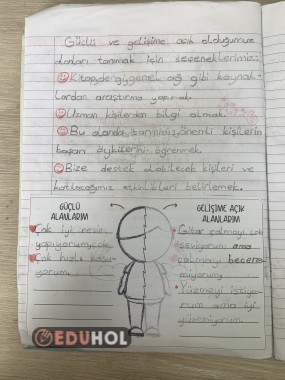 Güçlü ve gelişime açık olduğumuz
alanları tanımak için seçeneklerimiz:
Kitap, dergi, genel ağ gibi kaynak-
lardan araştırma yapmak.
Uzman kişilerden bilgi almak.
Bu alanda tanınmış, önemli kişilerin
başarı öykülerini öğrenmek.
Bize destek olabilecek kişileri ve
katılacağımız etkinlikleri belirlemek.
GÜÇLÜ
ALANLARIM
Çok iyi resim
yapıyorum
Çok hızlı koşu-
yorum
GELİŞİME AÇIK
ALANLARIM
Gitar çalmayı çok
seviyorum ama
çalmayı becere-
miyorum
Yüzmeyi istiyo-
rum ama iyi
yüzemiyorum
EDUHOL